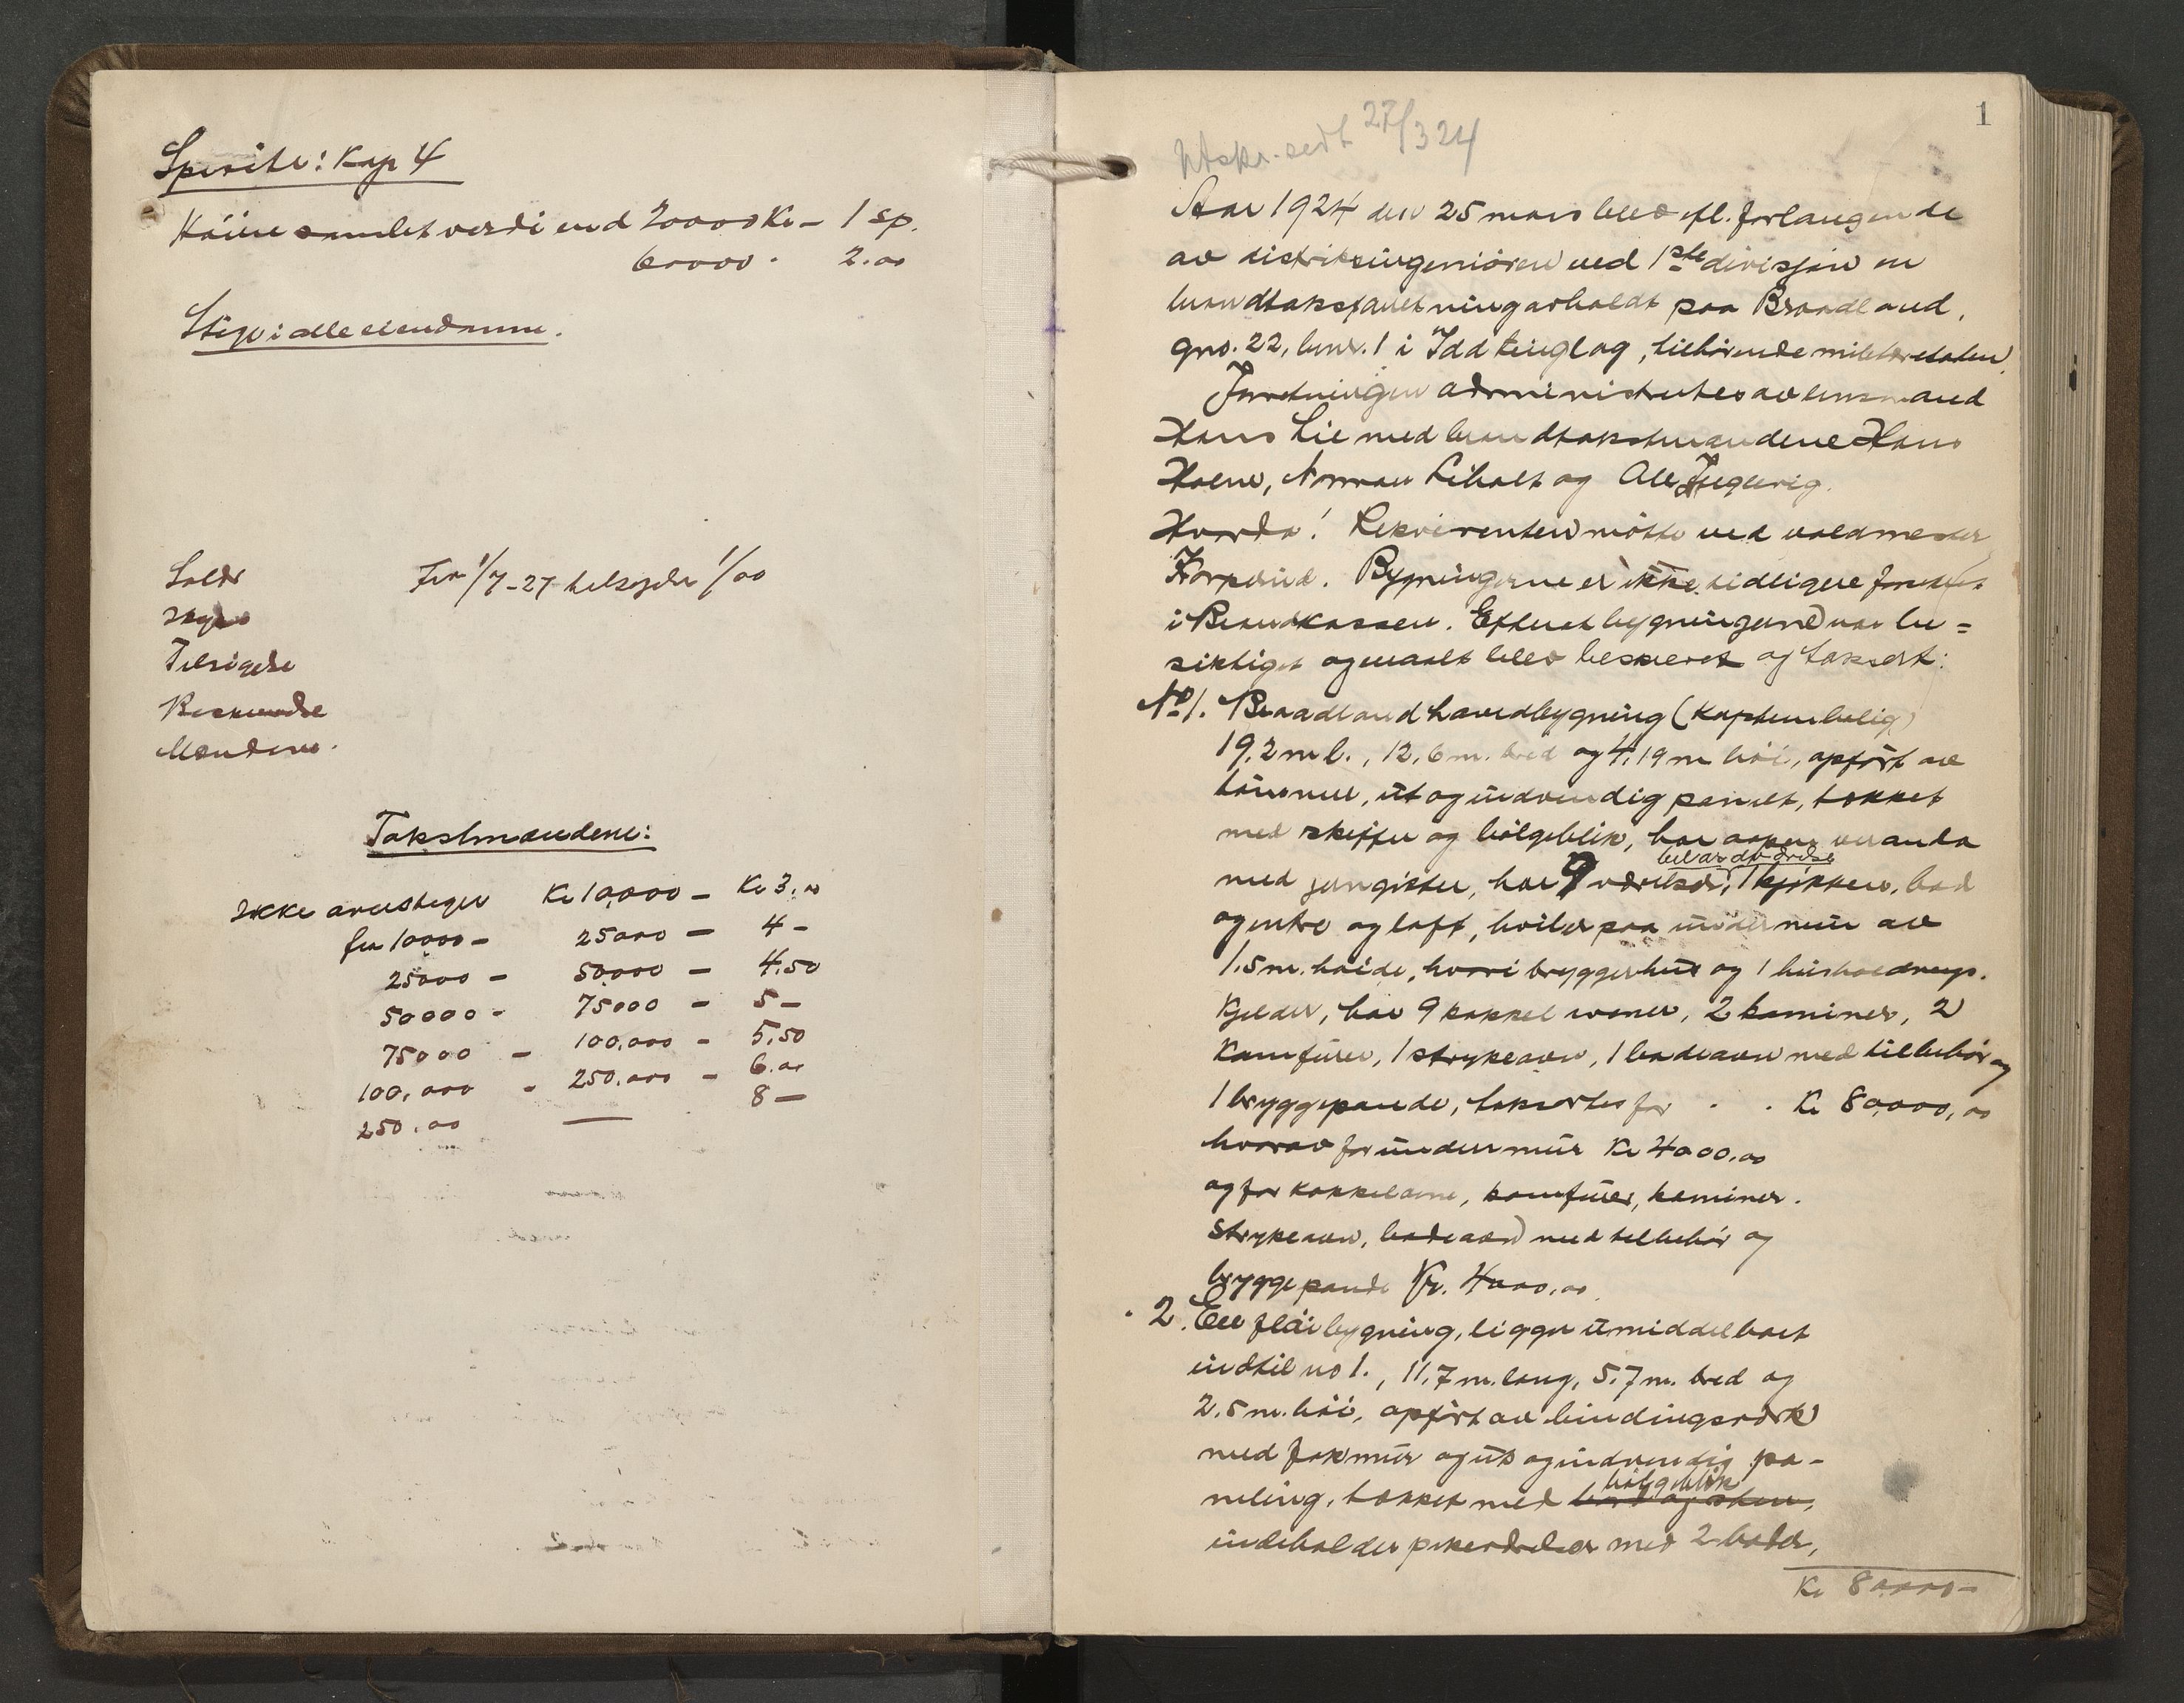 Sperite: Kap 4
Höiere samlet verdi end 20000 Kr – 1 sp.
60000 · 2.00
Stige i alle eiendomme.
Fra 1/7-27 tilsigelse 1/00
Skyds
Tilsigelse
Beskrivelse
Mændene.
Takstmændene:
Ikke overstiger Kr 10,000 – Kr 3.00
fra 10000 – 25000 – 4 –
25000 – 50,000 – 4.50
50000 – 75000 – 5 –
75000 – 100,000 – 5.50
100,000 – 250,000 – 6.00
250.00 — 8 –
1
Utskr. sedt 27/3 24
Aar 1924 den 25 mars blev efl. forlangende
av distriktsingeniören ved 1ste divisjon en
brandtakstforretning avholdt paa Braadland,
gno. 22, bnr. 1 i Idd tinglag, tilhörende militæretaten.
Forretningen administrertes av lensmand
Hans Lie med brandtakstmændene Hans
Holm, Norman Liholt og Ole
Hvorda! Rekvirenten mötte ved voldmester
Korperud. Bygningerne er ikke tidligere forsikret
i Brandkassen. Efterat bygningerne var be=
siktiget og maalt blev beskrevet og taksert:
No 1. Braadland hovedbygning (Kapteinbolig)
19,2 m l., 12,6 m. bred og 4,19 m höi, opfört av
tömmer, ut og indvendig panelt, tækket
med skiffer og bölgeblik, har aapen veranda
med jerngitter, har 9 værelser, 1 kjökken, bad
og entre og loft, hviler paa undermur av
1.5 m. höide, hvori bryggerhus og 1 husholdnings.
Kjelder, har 9 kakkelovner, 2 kaminer, 2
Kamfurer, 1 strykeovn, 1 badeovn med tilbehör og
1 bryggepande, takserles for · · Kr 80,000,00
hvorav for undermur Kr 4000.00
og for kakkelovne, kamfurer, kaminer.
Strykeovn, badeovn med tilbehör og
bryggepande Kr. 4000.00
" 2. En flöibygning, ligger umiddelbart
indtil no 1., 11,7 m. lang, 5.7 m. bred og
2.5 m. höi, opfört av bindingsverk
med fakmur og ut og indvendig pa-
neling, tækket med bord og sten, bölgeblik
indeholder med 2 boder,
Kr 80000 –